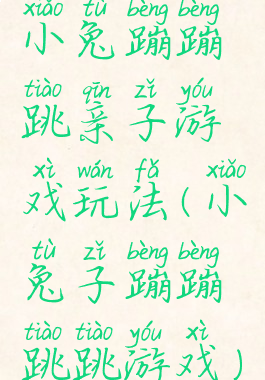 xiǎo tù bèng bèng
小兔蹦蹦
tiào qīn zǐ yóu
跳亲子游
xì wán fǎ xiǎo
戏玩法(小
tù zǐ bèng bèng
兔子蹦蹦
tiào tiào yóu xì
跳跳游戏)